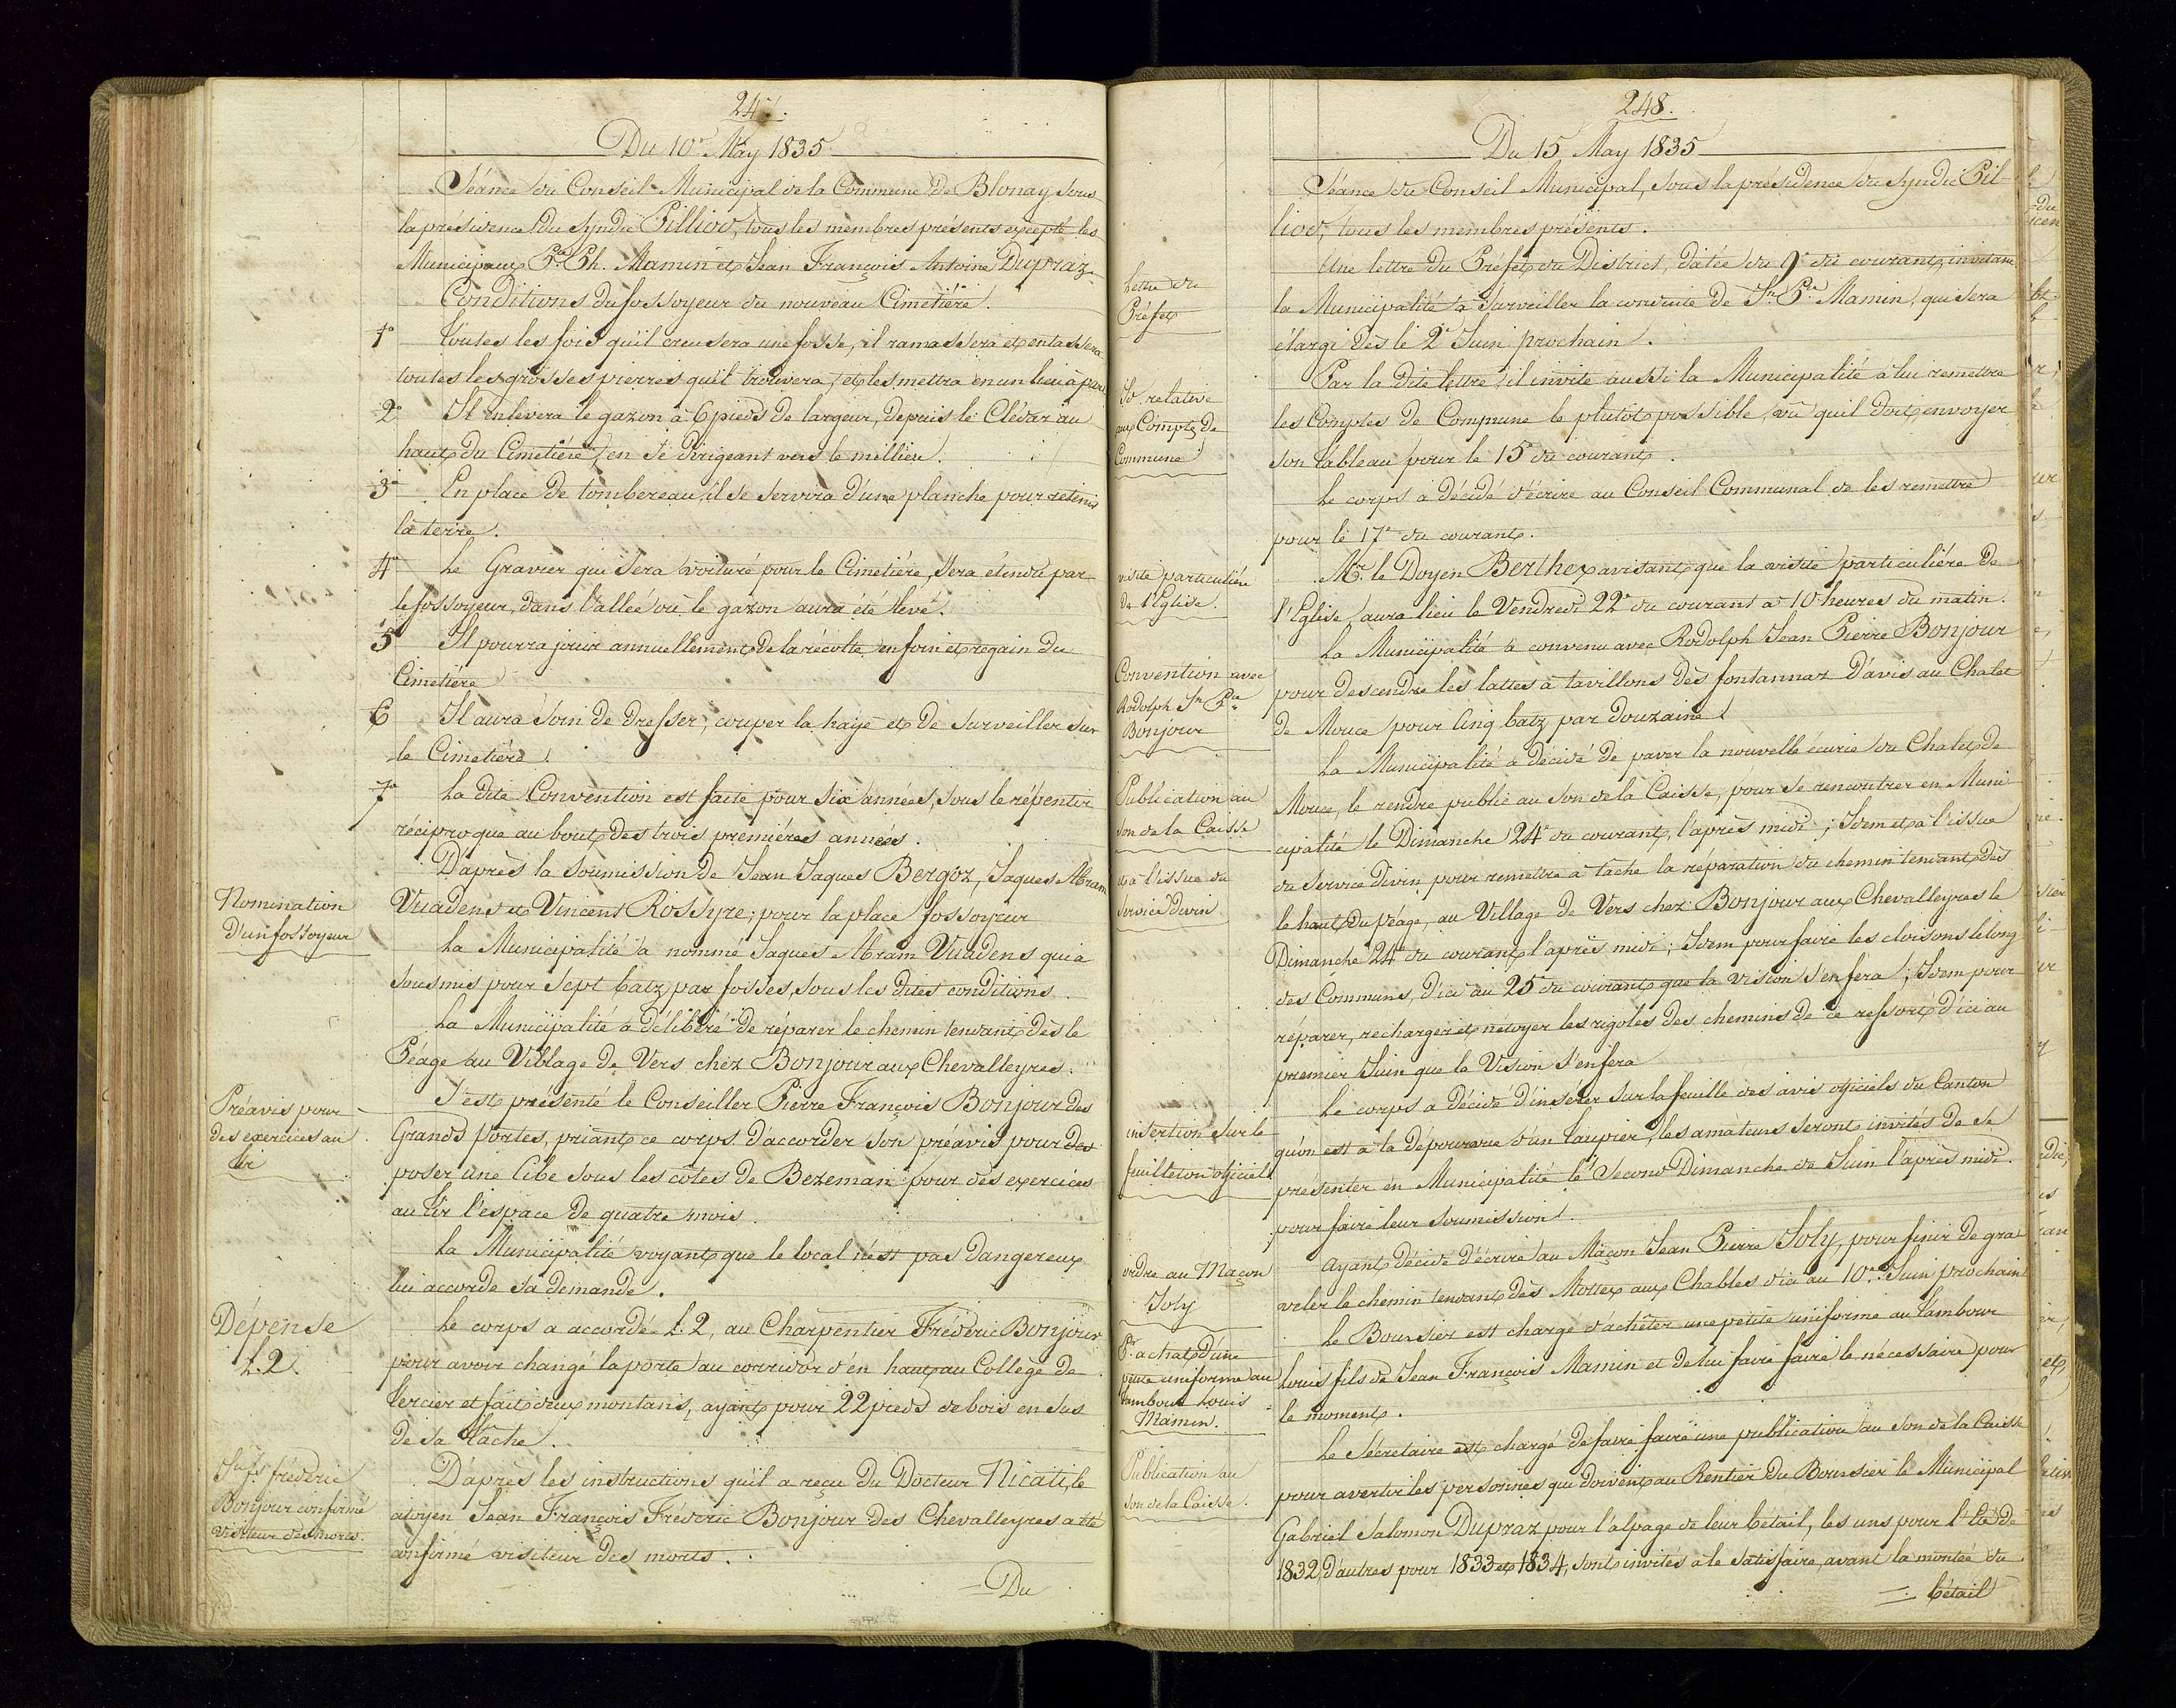 247.
Du 10e May 1835
Séance du Conseil Municipal de la Commune de Blonay sous
la présidence du Syndic Pilliod, tous les membres présents excepté les
Municipaux Pre Ph. Mamin et Jean François Antoine Dupraz
Conditions du fossoyeur du nouveau Cimetière.
1o Toutes les fois qu'il creusera une fosse, il ramassera et entassera
toutes les grosses pierres qu'il trouvera, et les mettra en un lieu à part
2o Il enlevera le gazon à 6 pieds de largeur, depuis le Clédar au
haut du Cimetière, en se dirigeant vers le millieu.
3o En place de tombereau, il se servira d'une planche pour retenir
la terre.
4o Le Gravier qui sera voituré pour le Cimetière, sera étendu par
le fossoyeur, dans l'allée où le gazon aura été levé.
5o Il pourra jouir annuellement de la récolte en foin et regain du
Cimetière
6 Il aura soin de dresser, couper la haye et de surveiller sur
le Cimetière.
7o La dite Convention est faite pour six années, sous le répentir
réciproque au bout des trois premières années.
D'après la soumission de Jean Jaques Bergoz, Jaques Abram
Nomination
d'un fossoyeur
Vuadens et Vincent Rossyre; pour la place fossoyeur
La Municipalité a nommé Jaques Abram Vuadens qui a
sousmis pour sept batz par fosses, sous les dites conditions.
La Municipalité a délibéré de réparer le chemin tendant dès le
Péage au Village de Vers chez Bonjour aux Chevalleyres.
Préavis pour
des exercices au
tir
S'est présenté le Conseiller Pierre François Bonjour des
Grands Portes, priant ce corps d'accorder son préavis pour des
poser une Cibe sous les côtes de Bezeman pour des exercices
au tir l'espace de quatre mois.
La Municipalité voyant que le local n'est pas dangereux
lui accorde sa demande.
Dépense
L. 2.
Le corps a accordé L. 2, au Charpentier Fréderic Bonjour
pour avoir changé la porte au corridor d'en haut au Collège de
Tercier et fait deux montans, ayant pour 22 pieds de bois en sus
de sa tâche.
Jn fs fréderic
Bonjour confirmé
visiteur des morts.
D'après les instructions qu'il a reçu du Docteur Nicati, le
citoyen Jean François Fréderic Bonjour des Chevalleyres a été
confirmé visiteur des morts.
Du
248.
Du 15 May 1835
Séance du Conseil Municipal, sous la présidence du Syndic Pil-
liod, tous les membres présents.
Lettre du
Préfet
Une lettre du Préfet du District, datée du 9e du courant, invitant
la Municipalité à surveiller la conduite de Jn Pre Mamin, qui sera
élargi dès le 2e Juin prochain.
Id. relative
aux Comptes de
Commune
Par la dite lettre, il invite aussi la Municipalité à lui remettre
les Comptes de Commune le plutôt possible, vu qu'il doit envoyer
son tableau pour le 15e du courant.
Le corps a décidé d'écrire au Conseil Communal de les remettre
pour le 17e du courant.
visite particulière
de l'Eglise.
Mr. le Doyen Berthex avisant que la visite particulière de
l'Eglise aura lieu le Vendredi 22e du courant à 10 heures du matin.
Convention avec
Rodolph Jn Pre
Bonjour
La Municipalité a convenu avec Rodolph Jean Pierre Bonjour
pour descendre les lattes à tavillons dès fontannaz Davis au Chalet
de Mouce pour cinq batz par douzaine.
Publication au
son de la Caisse
et à l'issue du
service divin
La Municipalité a décidé de paver la nouvelle écurie du Chalet de
Mouce, le rendre public au son de la Caisse, pour se rencontrer en Muni
cipalité le Dimanche 24e du courant, l'après midi; Idem et à l'issue
du service divin pour remettre à tache la réparation du chemin tendant dès
le haut du Péage, au Village de Vers chez Bonjour aux Chevalleyres le
Dimanche 24e du courant l'après midi; Idem pour faire les cloisons le long
des Communs, d'ici au 25e du courant que la vision s'en fera; Idem pour
réparer, recharger et nétoyer les rigoles des chemins de ce ressort d'ici au
premier Juin que la Vision s'en fera
insertion sur le
feuilleton officiel
Le corps a décidé d'insérer sur la feuille des avis officiels du Canton
qu'on est à la dépourvue d'un taupier, les amateurs seront invités de se
presenter en Municipalité le second Dimanche de Juin l'après midi.
pour faire leur soumission.
ordre au Maçon
Joly
Ayant décidé d'écrire au Maçon Jean Pierre Joly, pour finir de gra
veler le chemin tendant dès Mottex aux Chables d'ici au 10e Juin prochain
Pr. achat d'une
petite uniforme au
tambour Louis
Mamin.
Le Boursier est chargé d'achêter une petite uniforme au tambour
Louis fils de Jean François Mamin et de lui faire faire le nécessaire pour
le moment.
Publication au
son de la Caisse.
Le Sécretaire est chargé de faire faire une publication au son de la Caisse
pour avertir les personnes qui doivent au Rentier du Boursier le Municipal
Gabriel Salomon Dupraz pour l'alpage de leur bétail, les uns pour l'été de
1832, d'autres pour 1833 et 1834, sont invités à le satisfaire, avant la montée du
bétail